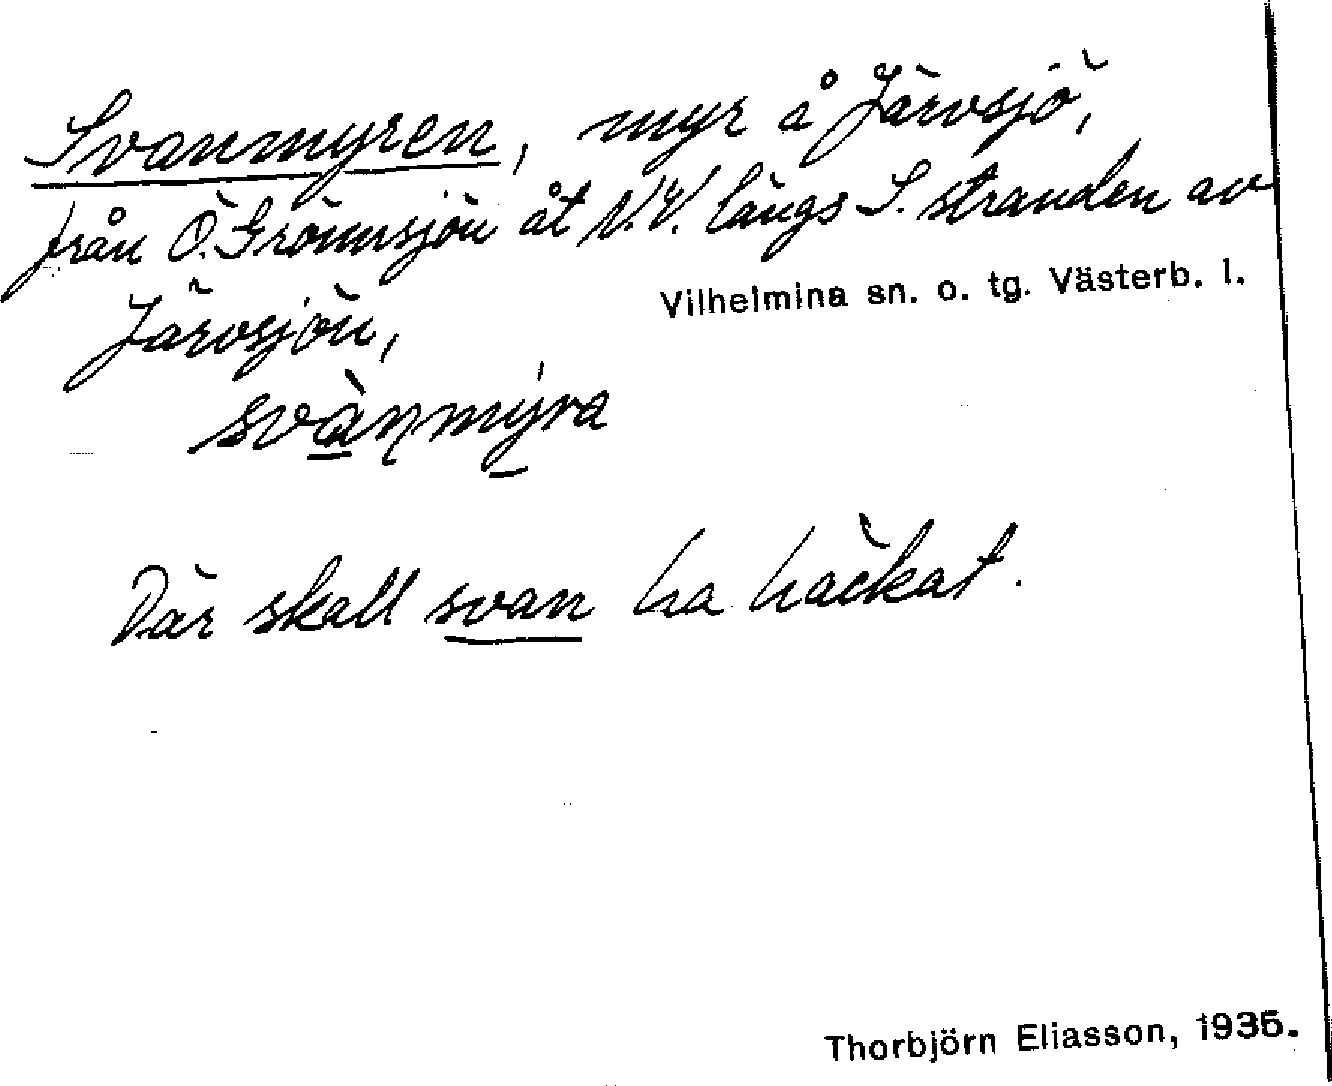 Svanmyren, myr å Järvsjö,
från Ö. Grönnsjön åt N.V. längs S. stranden av
Vilhelmina sn. o. tg. Västerb. l.
Järvsjön,
svànmýra
Där skall svan ha häckat.
Thorbjörn Eliasson, 1935.